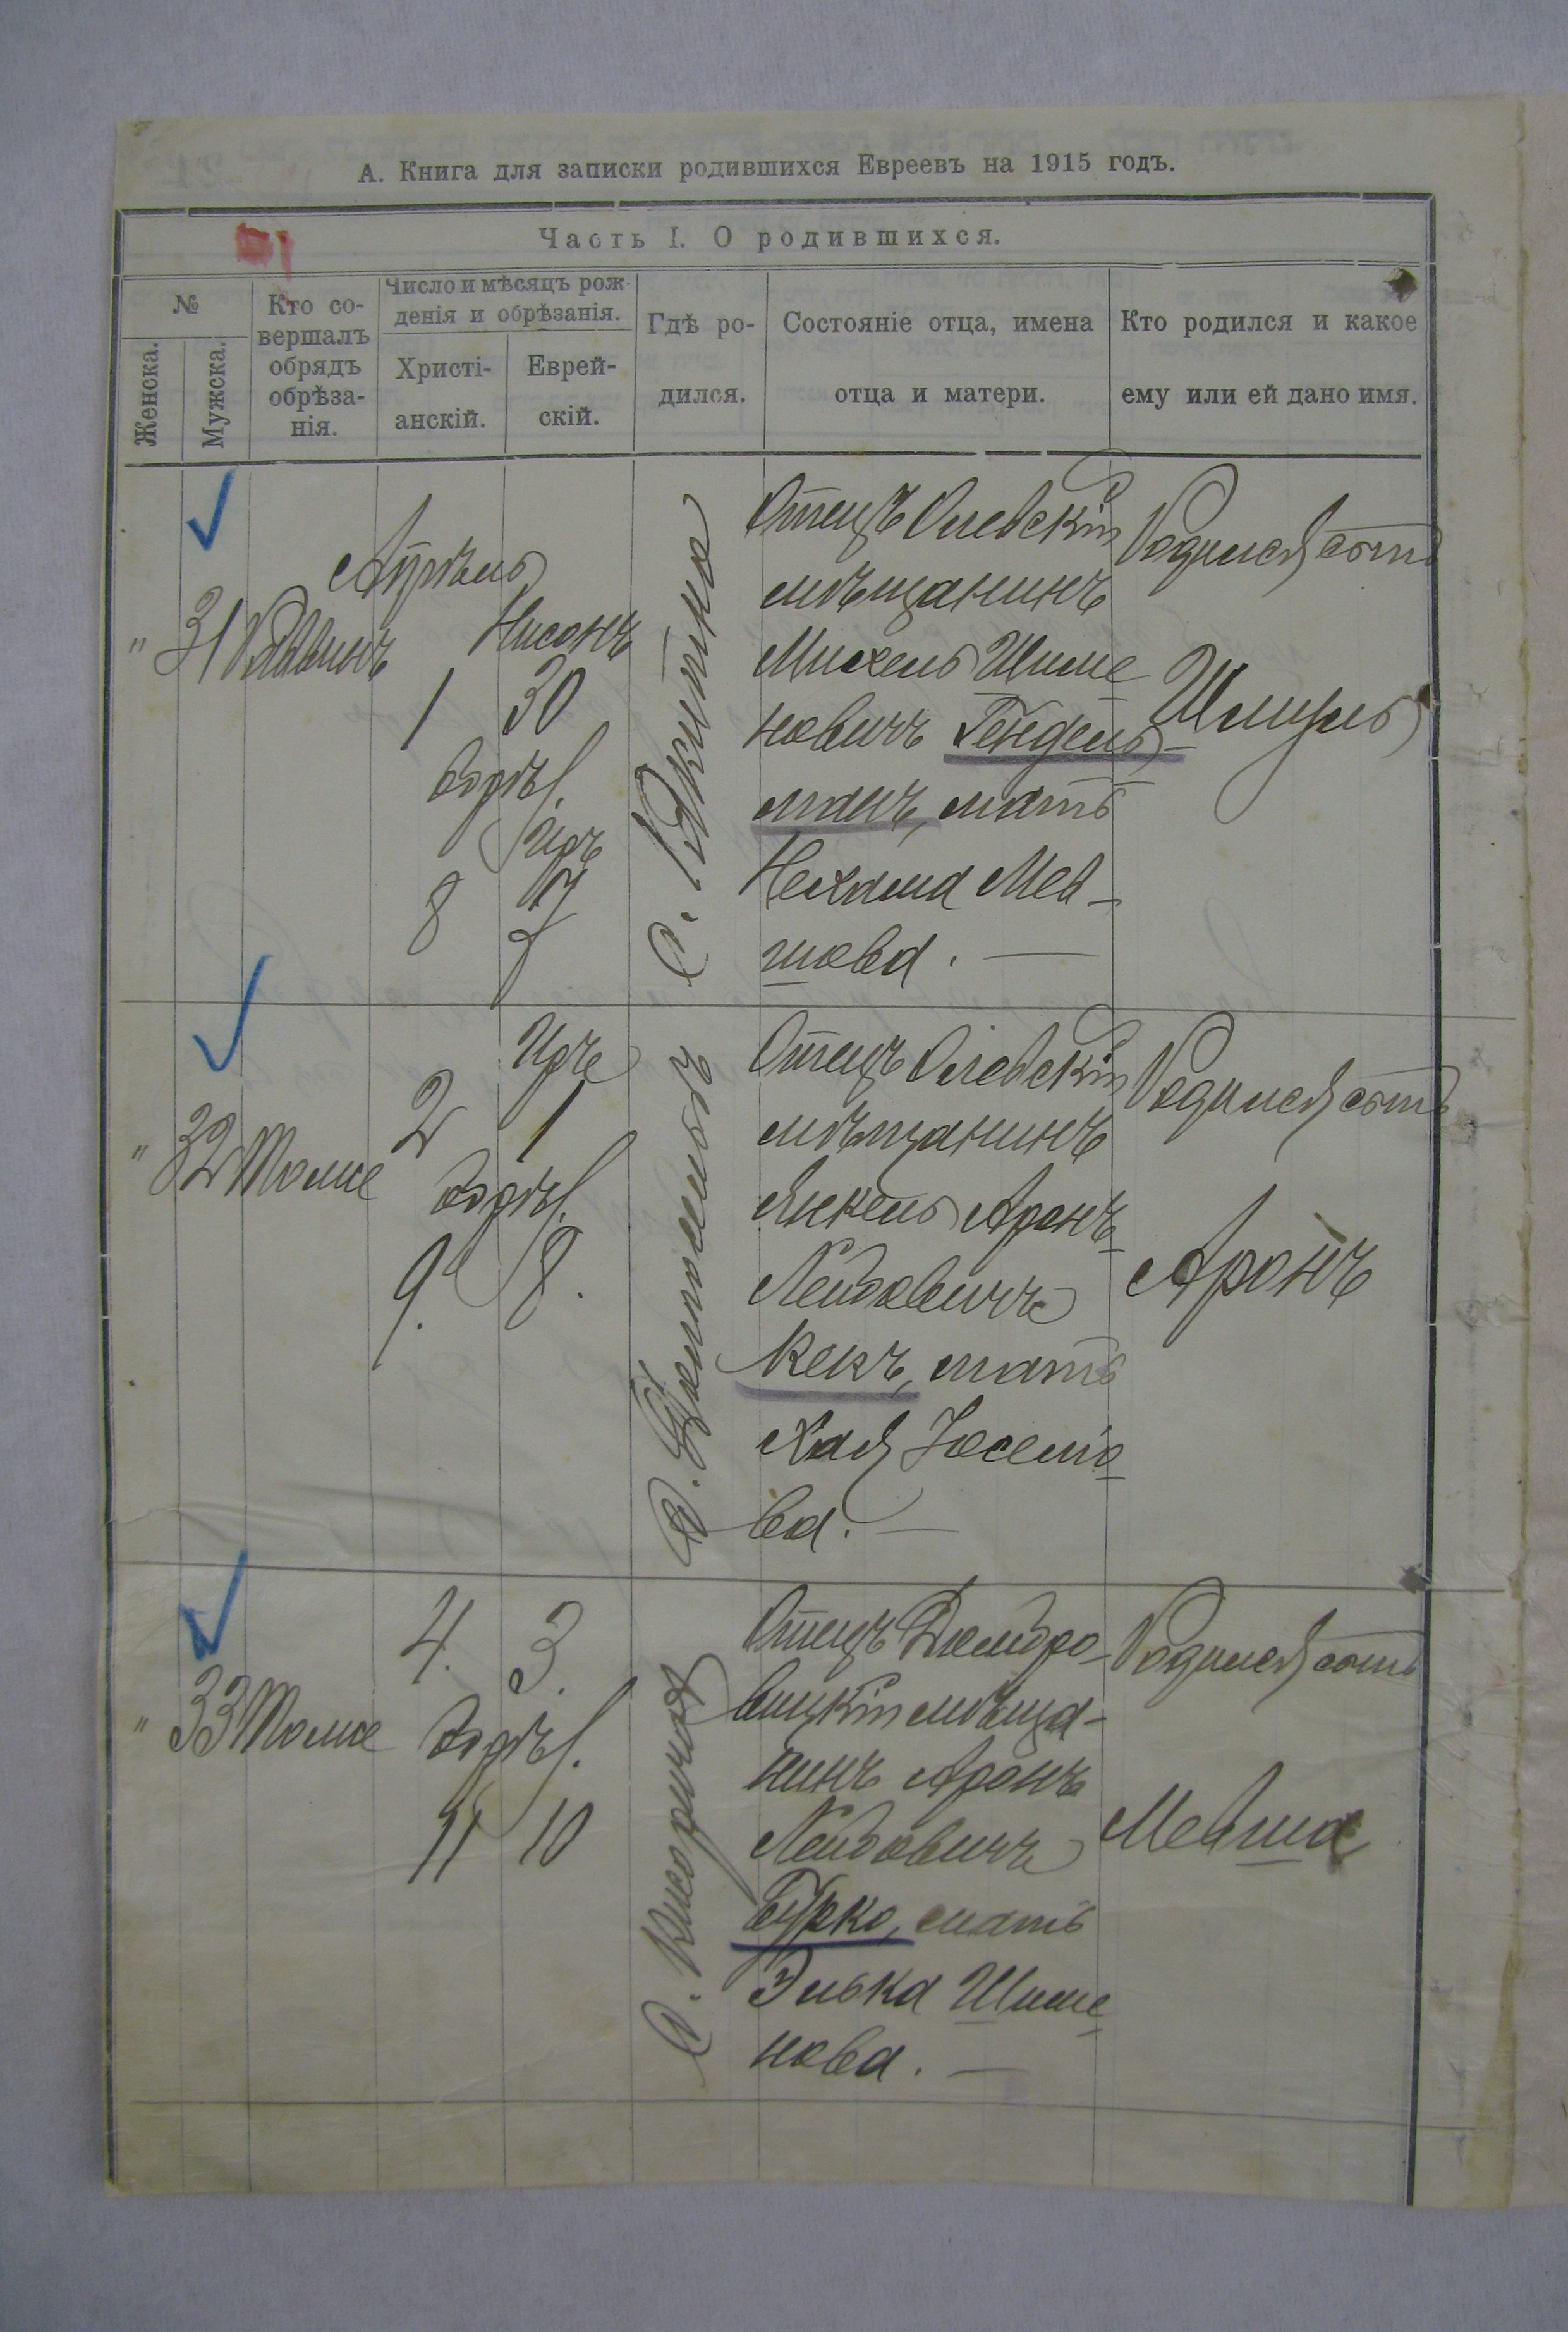 А. Книга для записки родившихся Евреевъ на 1915 годъ.
Часть I. О родившихся.
№
Женска.
Мужска.
Кто со-
вершалъ
обрядъ
обрѣза-
нія.
Число и мѣсяцъ рож-
денія и обрѣзанія.
Христі-
анскій.
Еврей-
скій.
Гдѣ ро-
дился.
Состояніе отца, имена
отца и матери.
Кто родился и какое
ему или ей дано имя.
" 31 Раввинъ
Апрѣль
Нисонъ
1 30
обрѣз.
Иръ
8 7
Отецъ Олевскій
мѣщанинъ
Михель Шиме
новичъ Гендель-
манъ, мать
Нехама Мев-
шова. —
Родился сынъ
Шмуль
" 32 Тоже
Иръ
2 1
обрѣз.
9. 8.
Отецъ Олевскій
мѣщанинъ
Янкель Аронъ-
Лейбовичъ
Кекъ, мать
Хая Іосено
ва. —
Родился сынъ
Аронъ
" 33 Тоже
4. 3.
обрѣз.
11 10
Отецъ Домбро-
вицкій мѣща-
нинъ Аронъ
Лейбовичъ
Бурко, мать
Элька Шиме
нова. —
Родился сынъ
Мевша